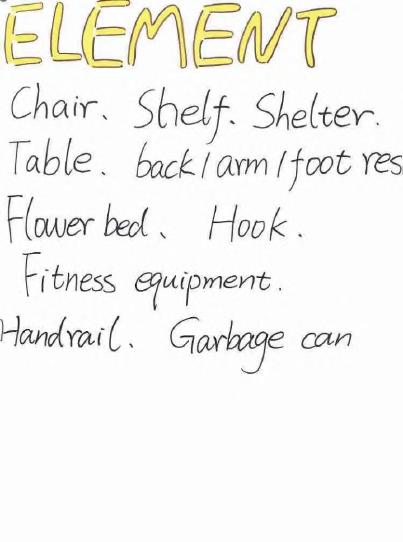 ELEMENT
Chair、 Shelf. Shelter.
Table. back/arm/foot res
Flower bed、 Hook.
Fitness equipment.
Handrail、 Garbage can